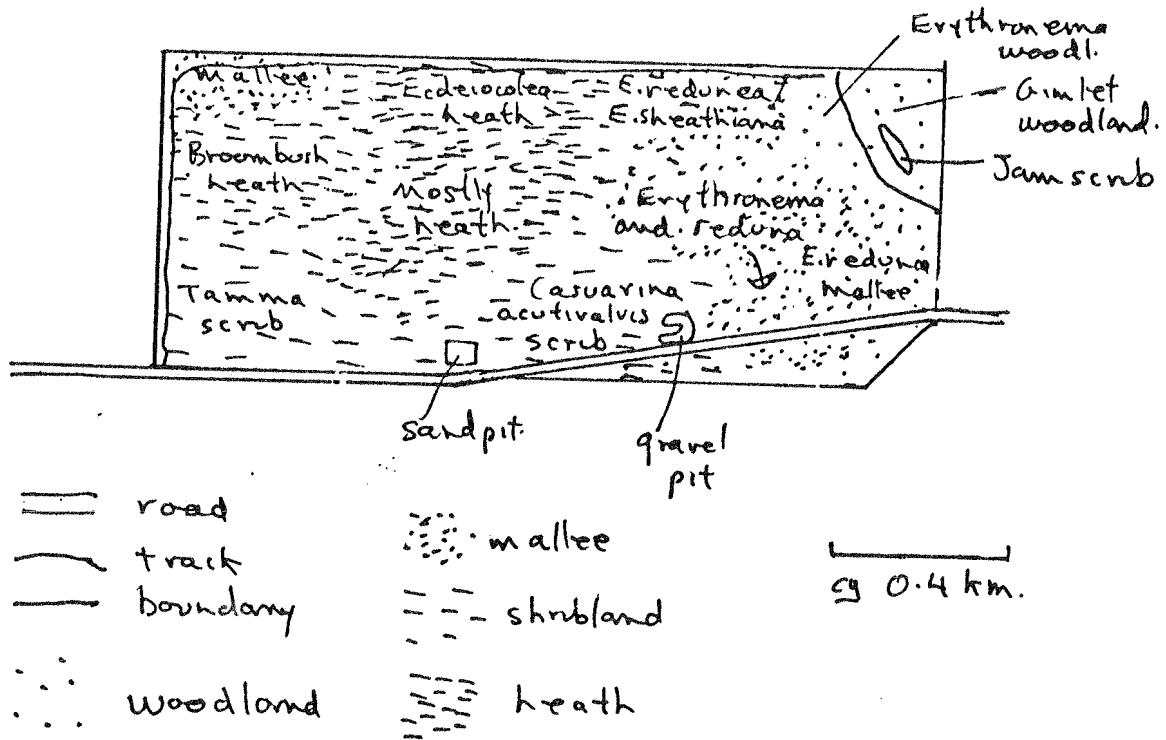 Erythronema
woodl.
Gimlet
woodland.
Jam scrub
mallee
Ecdeiocolea
heath
E. redunca &
E. sheathiana
Broombush
heath
Mostly
heath
Erythronema
and redunca
E. redunca
mallee
Tamma
scrub
Casuarina
acutivalvis
scrub
sandpit
gravel
pit
road
track
boundary
woodland
mallee
shrubland
heath
0.4 km.